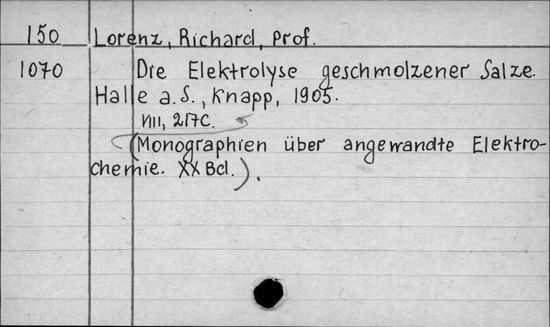 150 Lorenz, Richard, Prof.
1070 Die Elektrolyse geschmolzener Salze.
Halle a.S., Knapp, 1905.
VIII, 217C.
(Monographien über angewandte Elektro-
chemie. XX Bd.).